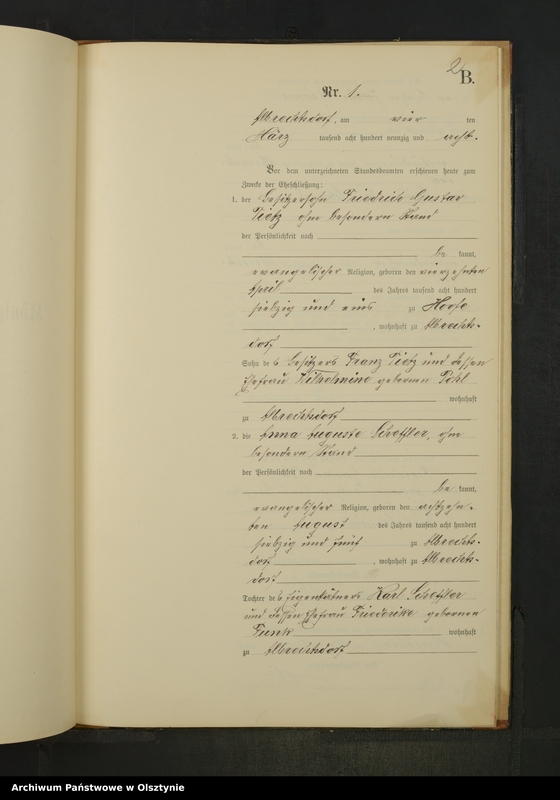 2
B.
Nr. 1.
Albrechtsdorf, am vier ten
März tausend acht hundert neunzig und acht.
Vor dem unterzeichneten Standesbeamten erschienen heute zum
Zwecke der Eheschließung:
1. der Besitzersohn Friedrich Gustav
Tietz ohne besondern Stand
der Persönlichkeit nach
be kannt,
evangelischer Religion, geboren den vierzehnten
April des Jahres tausend acht hundert
siebzig und eins zu
, wohnhaft zu Albrechts-
dorf
Sohn des Besitzers Franz Tietz und dessen
Ehefrau Wilhelmine geborenen Pohl
wohnhaft
zu Albrechtsdorf
2. die Anna Auguste Scheffler, ohne
besondern Stand
der Persönlichkeit nach
be kannt,
evangelischer Religion, geboren den achtzehn-
ten August des Jahres tausend acht hundert
siebzig und fünf zu Albrechts-
dorf , wohnhaft zu Albrechts-
dorf
Tochter des Eigenkätners Karl Scheffler
und dessen Ehefrau Friederike geborenen
Funk wohnhaft
zu Albrechtsdorf
Archiwum Państwowe w Olsztynie